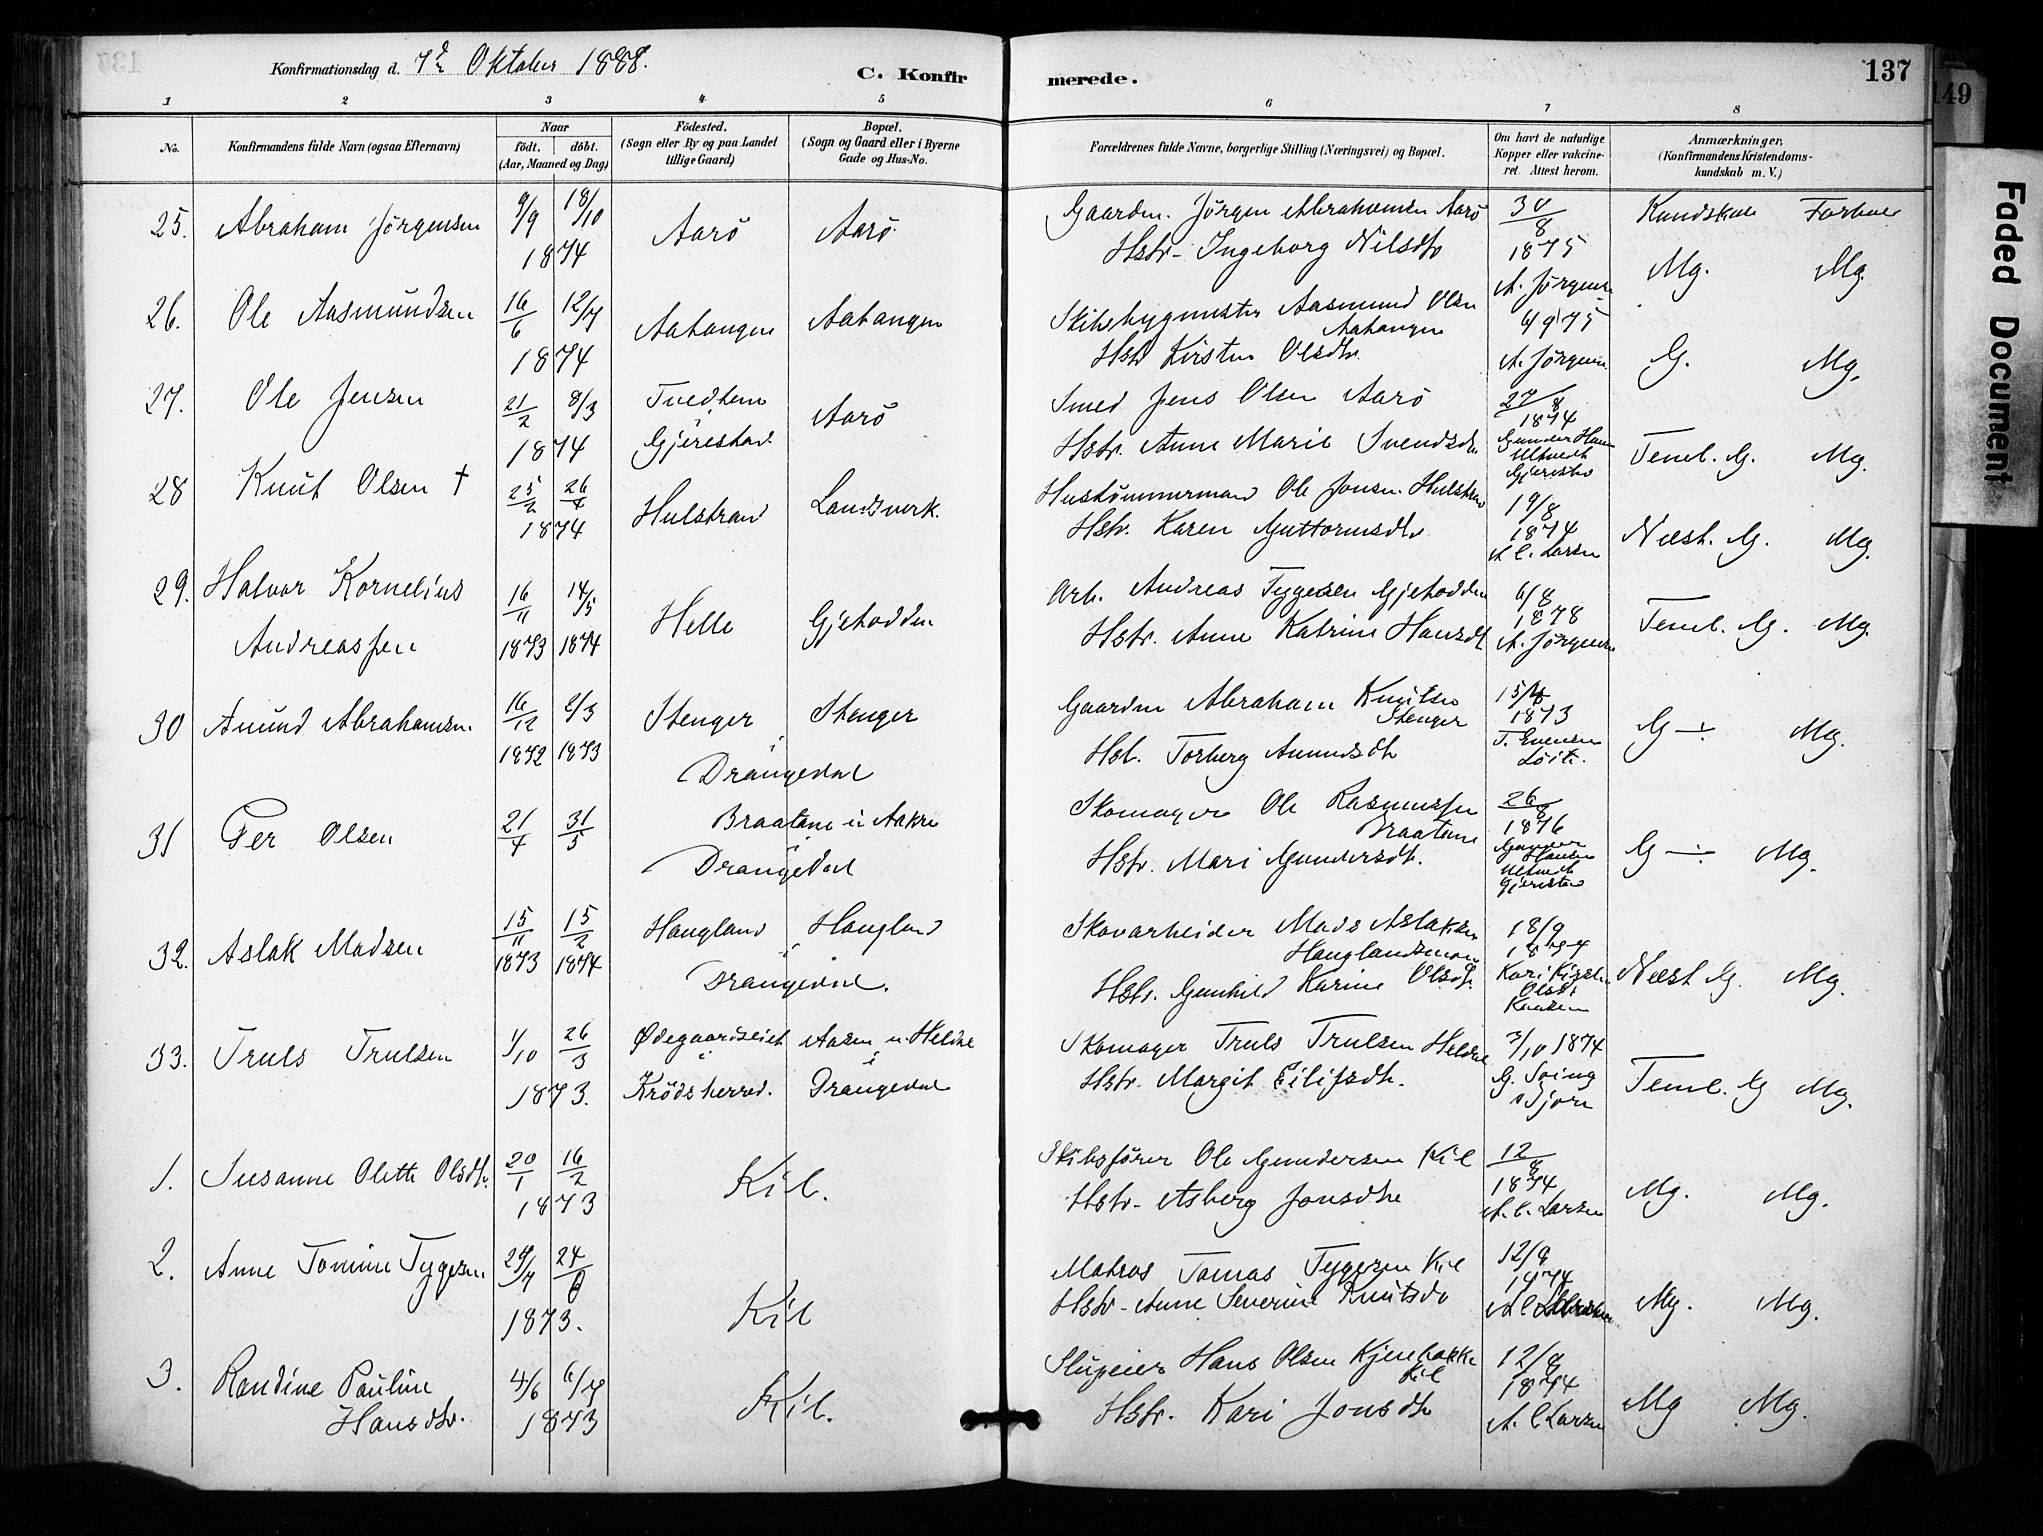 Konfirmationsdag d. 7de Oktober 1888.
C. Konfirmerede.
137
149
Faded Document
1 2 3 4 5 6 7 8
No.
Konfirmandens fulde Navn (ogsaa Efternavn)
Naar
födt. döbt.
(Aar, Maaned og Dag)
Födested.
(Sogn eller By og paa Landet
tillige Gaard)
Bopæl.
(Sogn og Gaard eller i Byerne
Gade og Hus-No.
Forældrenes fulde Navne, borgerlige Stilling (Næringsvei) og Bopæl.
Om havt de naturlige
Kopper eller vakcine-
ret. Attest herom.
Anmærkninger,
(Konfirmandens Kristendoms-
kundskab m. V.)
25. Abraham Jørgensen 9/9 18/10 1874 Aarö Aarö
Gaardm. Jørgen Abrahamsen Aarö
Hstr. Ingeborg Nilsdtr
30/8 1875
A. Jørgensen
Kundskab Forhold
Mg. Mg.
26. Ole Aasmundsen 16/6 12/7 1874 Aatangen Aatangen
Skibsbygmester Aasmund Olsen
Aatangen
Hstr Kirsten Olsdtr.
4/9 75
A. Jørgensen
G. Mg.
27. Ole Jensen 21/2 8/3 1874 Tvedtem
Gjerestad. Aarö
Smed Jens Olsen Aarö
Hstr. Anne Marie Svendsdtr
27/8 1874
Gunder Hansen
Ulltveit
Gjerestad
Teml. G. Mg.
28 Knut Olsen † 25/2 26/4 1874 Hulstrand Landsverk.
Hustømmermand Ole Jonsen Hulstrand
Hstr. Karen Guttormsdtr
19/8 1874
A C. Larsen
Næst. G. Mg.
29. Halvor Kornelius
Andreassen 16/11 1873 14/5 1874 Helle Gjetodden
Arb. Andreas Tygesen Gjetodden
Hstr. Anne Katrine Hansdt
6/8 1878
A. Jørgensen
Teml. G. Mg.
30 Anund Abrahamsen. 16/12 1872 2/3 1873 Stenger Stenger
i
Drangedal
Gaardm Abraham Knutsen
Stenger
Hst. Torberg Anundsdtr
15/8 1873
T. Evensen
Löite.
G ÷ Mg.
31 Per Olsen 21/4 31/5 Braatane u. Aakre
i
Drangedal
Skomager Ole Rasmussen
Braatane
Hstr. Mari Gundersdtr.
26/8 1876
Gunder
Hansen
Ulltveit
Gjerestad
G ÷ Mg.
32. Aslak Madsen 15/11 1873 15/2 1874 Haugland Haugland
i
Drangedal.
Skovarbeider Mads Aslaksen
Hauglandsmoen
Hstr. Gunhild Karine Olsdtr.
18/9 1874
Kari Kirstine
Olsdtr
Kaasen
Næst G. Mg.
33. Truls Trulsen 1/10 26/3 1873. Ødegaardseiet
i
Krødsherred. Aasen u. Heldre
i
Drangedal
Skomager Truls Trulsen Heldre
Hstr. Margit Eilifsdtr.
3/10 1874
Teml. G Mg.
1. Susanne Olette Olsdtr. 20/1 16/2 1873 Kil.
Skibsfører Ole Gundersen Kil
Hstr. Asberg Jonsdtr
12/8 1874
A. C. Larsen
Mg. Mg.
2. Anne Tomine Tygesen 29/7 24/8 1873. Kil
Matros Tomas Tygesen Kil
Hstr. Anne Severine Knutsdtr
12/8 1874
A C Larsen
Mg. Mg.
3. Randine Pauline
Hansdtr. 4/6 6/7 1873 Kil.
Hans Olsen Kjenbakke
Kil
Hstr. Kari Jonsdtr
12/8 1874
A. C Larsen
Mg Mg.